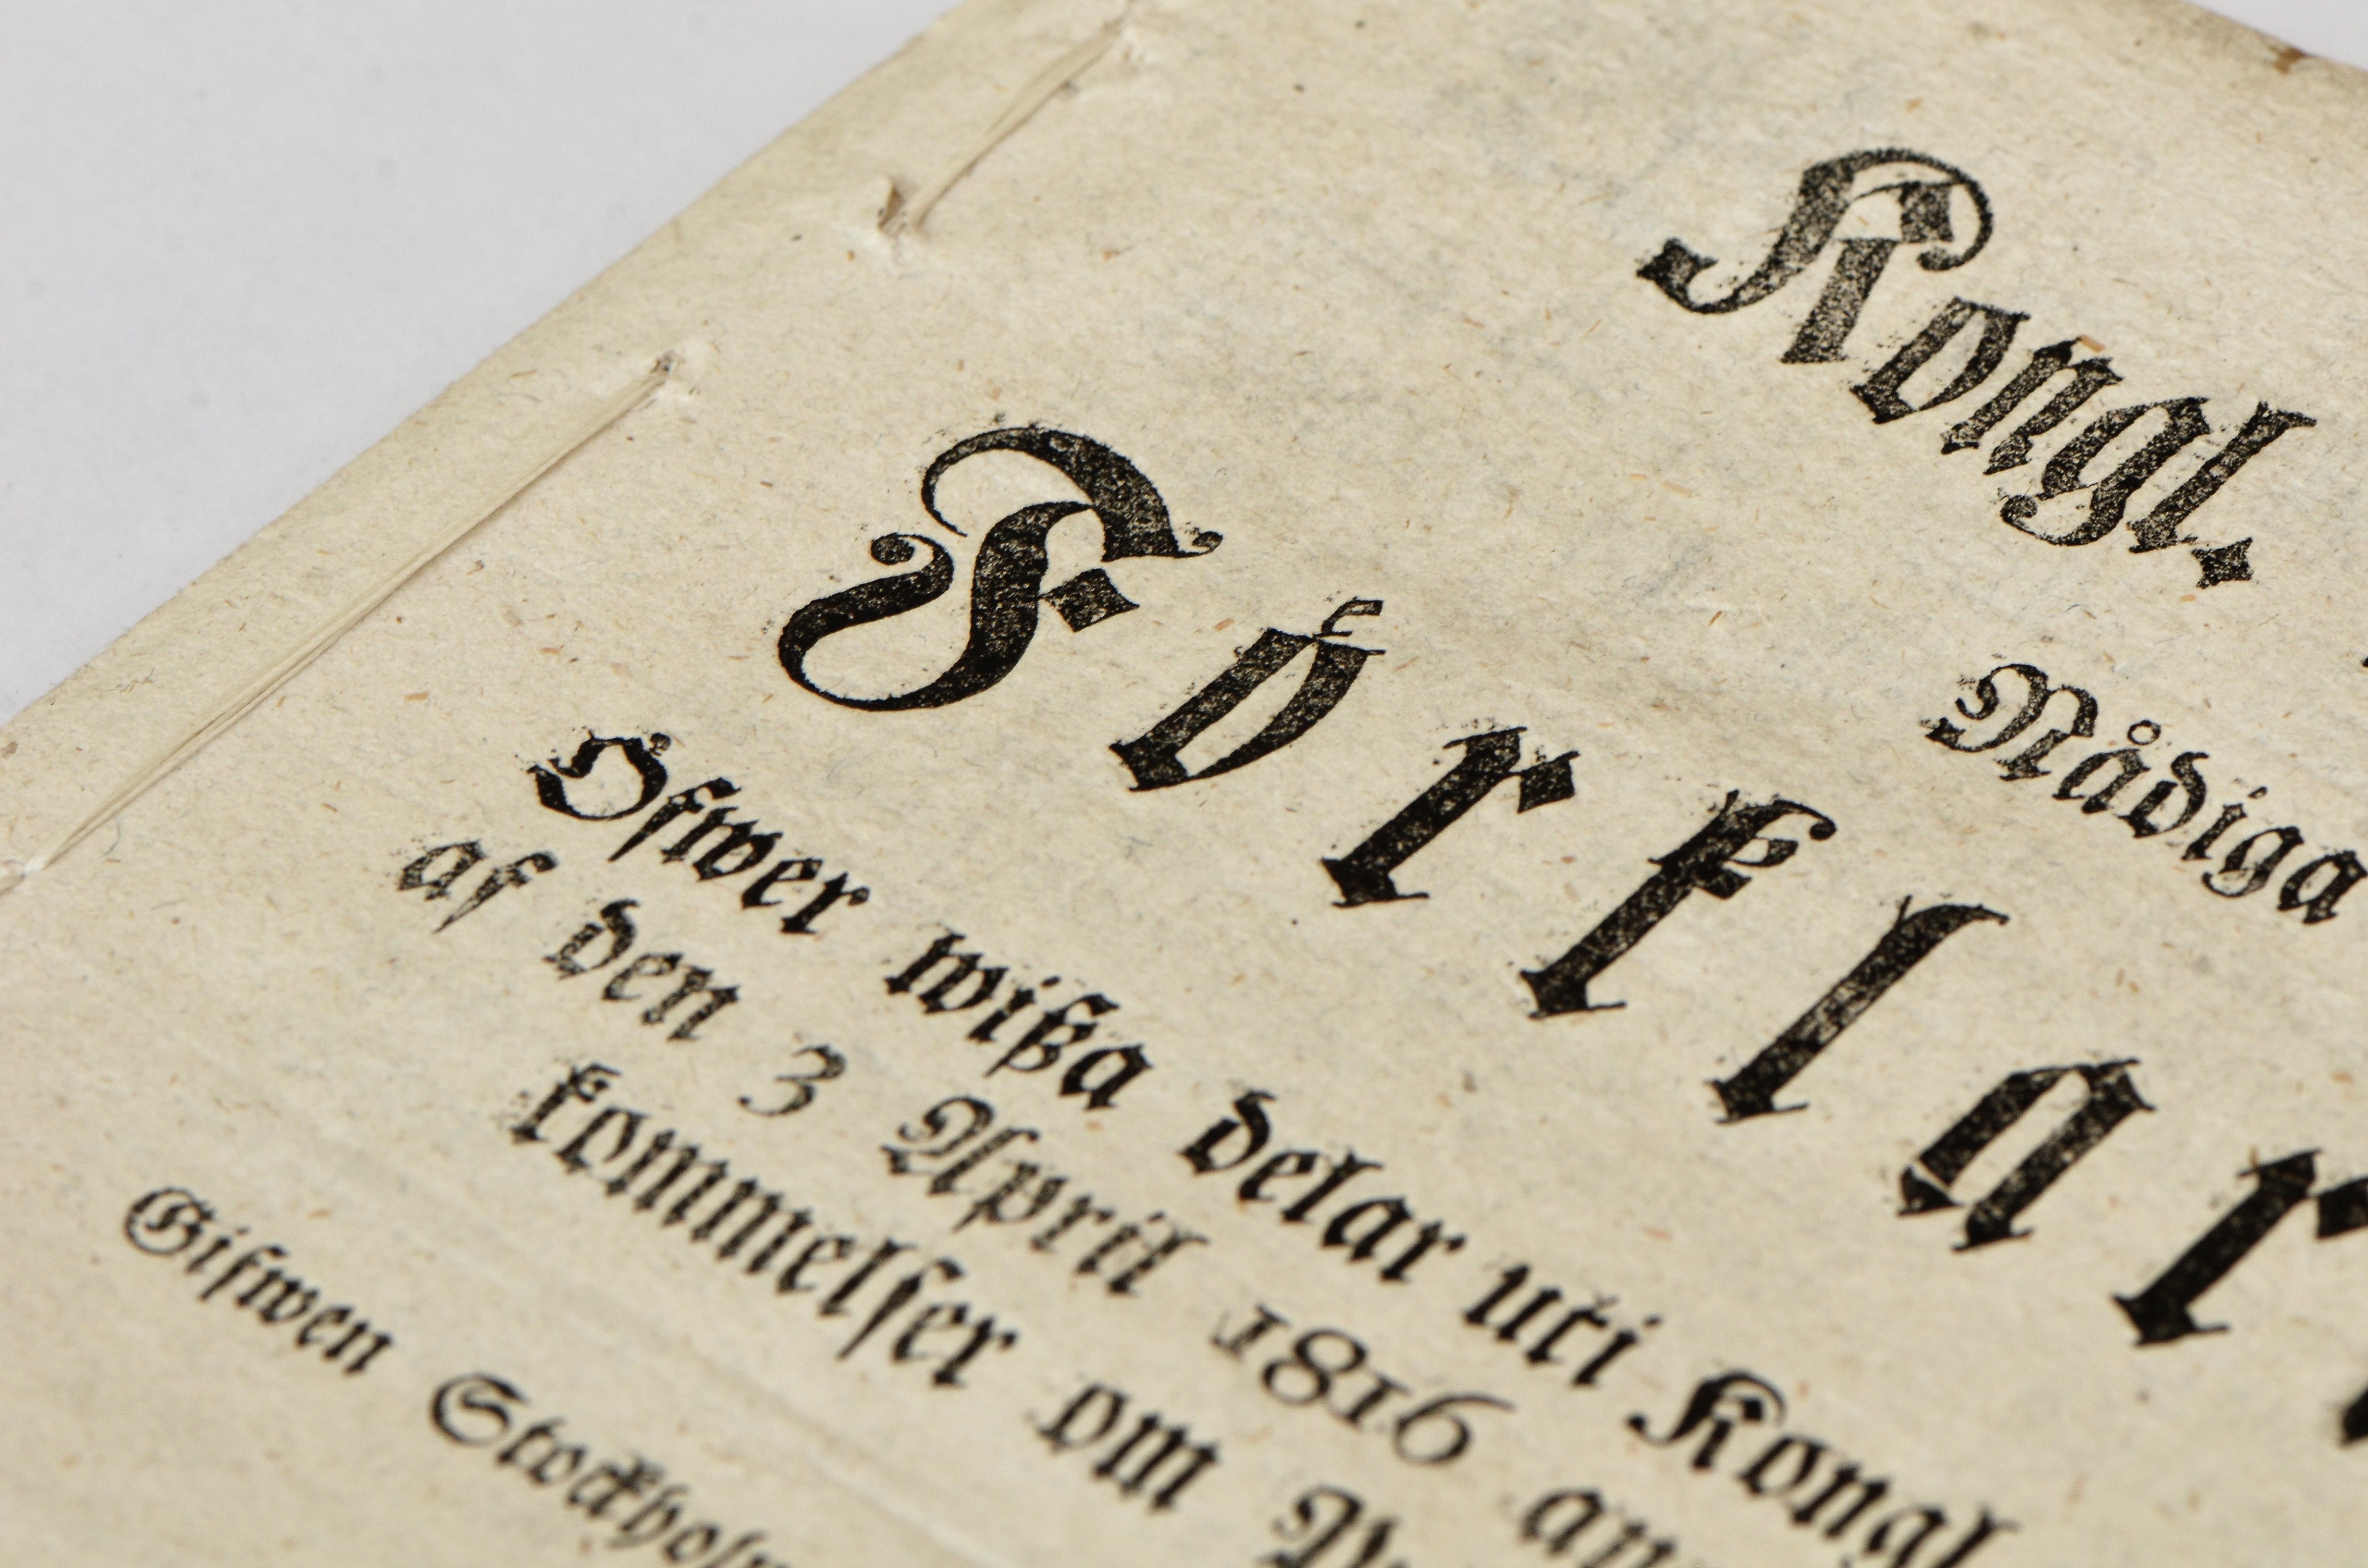 Kongl.
Nådiga
Förklar
Öfwer wißa delar uti Kongl
af den 3 April 1816 an
kommelser om P
Gifwen Stockholm